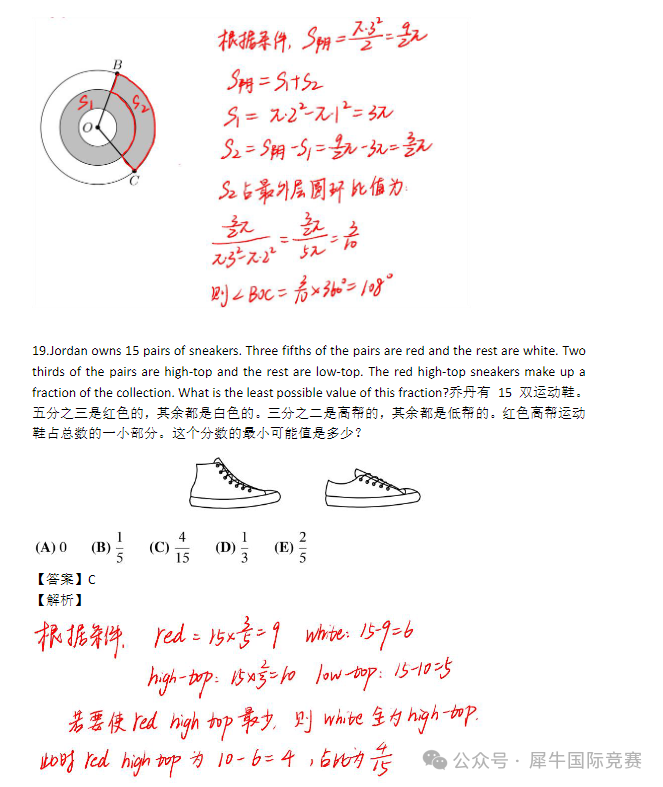 根据条件, S阴 = π·3²/2 = 9/2π
S阴 = S₁+S₂
S₁ = π·2²-π·1² = 3π
S₂ = S阴-S₁ = 9/2π-3π = 3/2π
S₂占最外层圆环比值为:
3/2π / π·3²-π·2² = 3/2π / 5π = 3/10
则∠BOC = 3/10×360° = 108°
B
S₁ S₂
O
C
19.Jordan owns 15 pairs of sneakers. Three fifths of the pairs are red and the rest are white. Two
thirds of the pairs are high-top and the rest are low-top. The red high-top sneakers make up a
fraction of the collection. What is the least possible value of this fraction?乔丹有 15 双运动鞋。
五分之三是红色的，其余都是白色的。三分之二是高帮的，其余都是低帮的。红色高帮运动
鞋占总数的一小部分。这个分数的最小可能值是多少？
(A) 0 (B) 1/5 (C) 4/15 (D) 1/3 (E) 2/5
【答案】C
【解析】
根据条件, red = 15×3/5 = 9 white: 15-9=6
high-top: 15×2/3=10 low-top: 15-10=5
若要使red high top最少, 则 white 全为high-top.
此时 red high top 为 10-6=4 , 占比为 4/15
公众号 · 犀牛国际竞赛